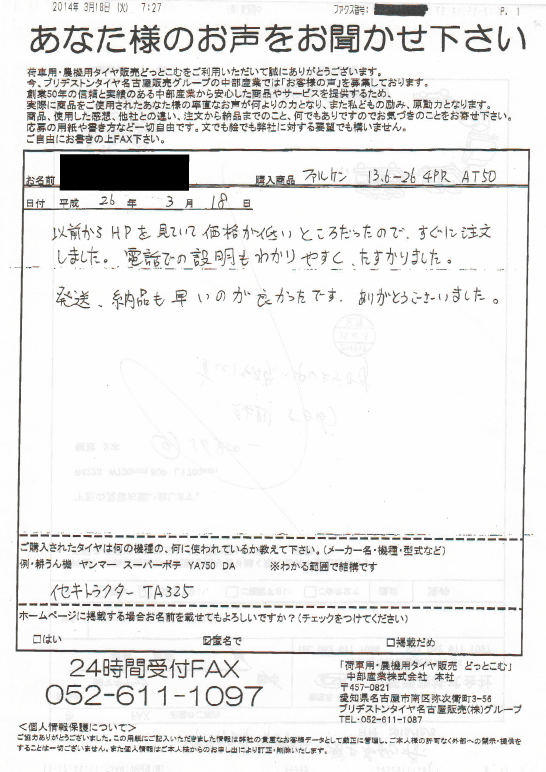 2014年 3月18日（火） 7:27 ファクス番号: P. 1
あなた様のお声をお聞かせ下さい
荷車用・農機用タイヤ販売どっとこむをご利用いただいて誠にありがとうございます。
今、ブリヂストンタイヤ名古屋販売グループの中部産業では「お客様の声」を募集しております。
創業50年の信頼と実績のある中部産業から安心した商品やサービスを提供するため、
実際に商品をご使用されたあなた様の率直なお声が何よりの力となり、また私どもの励み、原動力となります。
商品、使用した感想、他社との違い、注文から納品までのこと、何でもありですのでお気づきのことをお寄せ下さい。
応募の用紙や書き方など一切自由です。文でも絵でも弊社に対する要望でも構いません。
ご自由にお書きの上FAX下さい。
お名前 購入商品 ファルケン 13.6-26 4PR AT50
日付 平成 26 年 3 月 18 日
以前からHPを見ていて価格が低いところだったので、すぐに注文
しました。電話での説明もわかりやすく、たすかりました。
発送、納品も早いのが良かったです。ありがとうございました。
ご購入されたタイヤは何の機種の、何に使われているか教えて下さい。（メーカー名・機種・型式など）
例・耕うん機 ヤンマー スーパーポチ YA750 DA ※わかる範囲で結構です
イセキトラクター TA325
ホームページに掲載する場合お名前を載せてもよろしいですか？（チェックをつけてください）
□はい ☑匿名で □掲載だめ
24時間受付FAX
052-611-1097
「荷車用・農機用タイヤ販売 どっとこむ」
中部産業株式会社 本社
〒457-0821
愛知県名古屋市南区弥次衛町3-56
ブリヂストンタイヤ名古屋販売(株)グループ
TEL・052-611-1087
＜個人情報保護について＞
ご協力ありがとうございました。この用紙にご記入いただきました情報は弊社の貴重なお客様データとして厳正に管理し、ご本人様の許可なく外部への開示・提供を
することは一切ございません。また個人情報はご本人様からのお申し出により訂正・削除いたします。